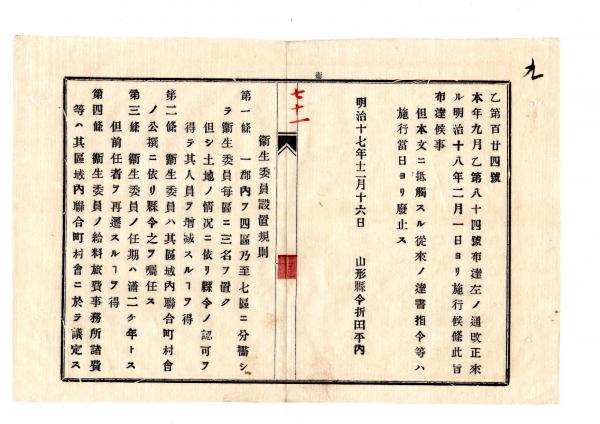 九
乙第百廿四號
本年九月乙第八十四號布達左ノ通改正來
ル明治十八年二月一日ヨリ施行候條此旨
布達候事
但本文ニ抵觸スル從來ノ達書指令等ハ
施行當日ヨリ廢止ス
明治十七年十二月十六日
山形縣令折田平內
七十一
衞生委員設置規則
第一條 一郡內ヲ四區乃至七區ニ分畫シ
ラ衞生委員每區ニ三名ヲ置ク
但シ土地ノ情況ニ依リ縣令ノ認可ヲ
得テ其人員ヲ增減スルヿヲ得
第二條 衞生委員ハ其區域內聯合町村會
ノ公撰ニ依リ縣令之ヲ囑任ス
第三條 衞生委員ノ任期ハ滿二ケ年トス
但前任者ヲ再選スルヿヲ得
第四條 衞生委員ノ給料旅費事務所諸費
等ハ其區域內聯合町村會ニ於テ議定ス